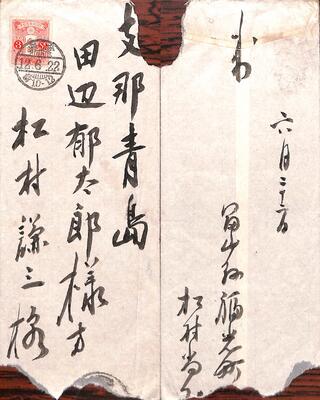 支那青島
田辺郁太郎様方
松村謙三様
12.6.22
六月二十二日
富山縣福光町
松村尚